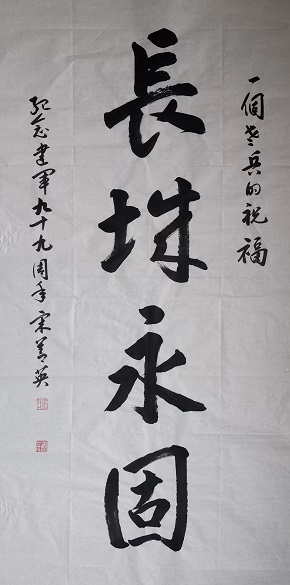 一個老兵的祝福
長城永固
紀念建軍九十九周年 宋善英